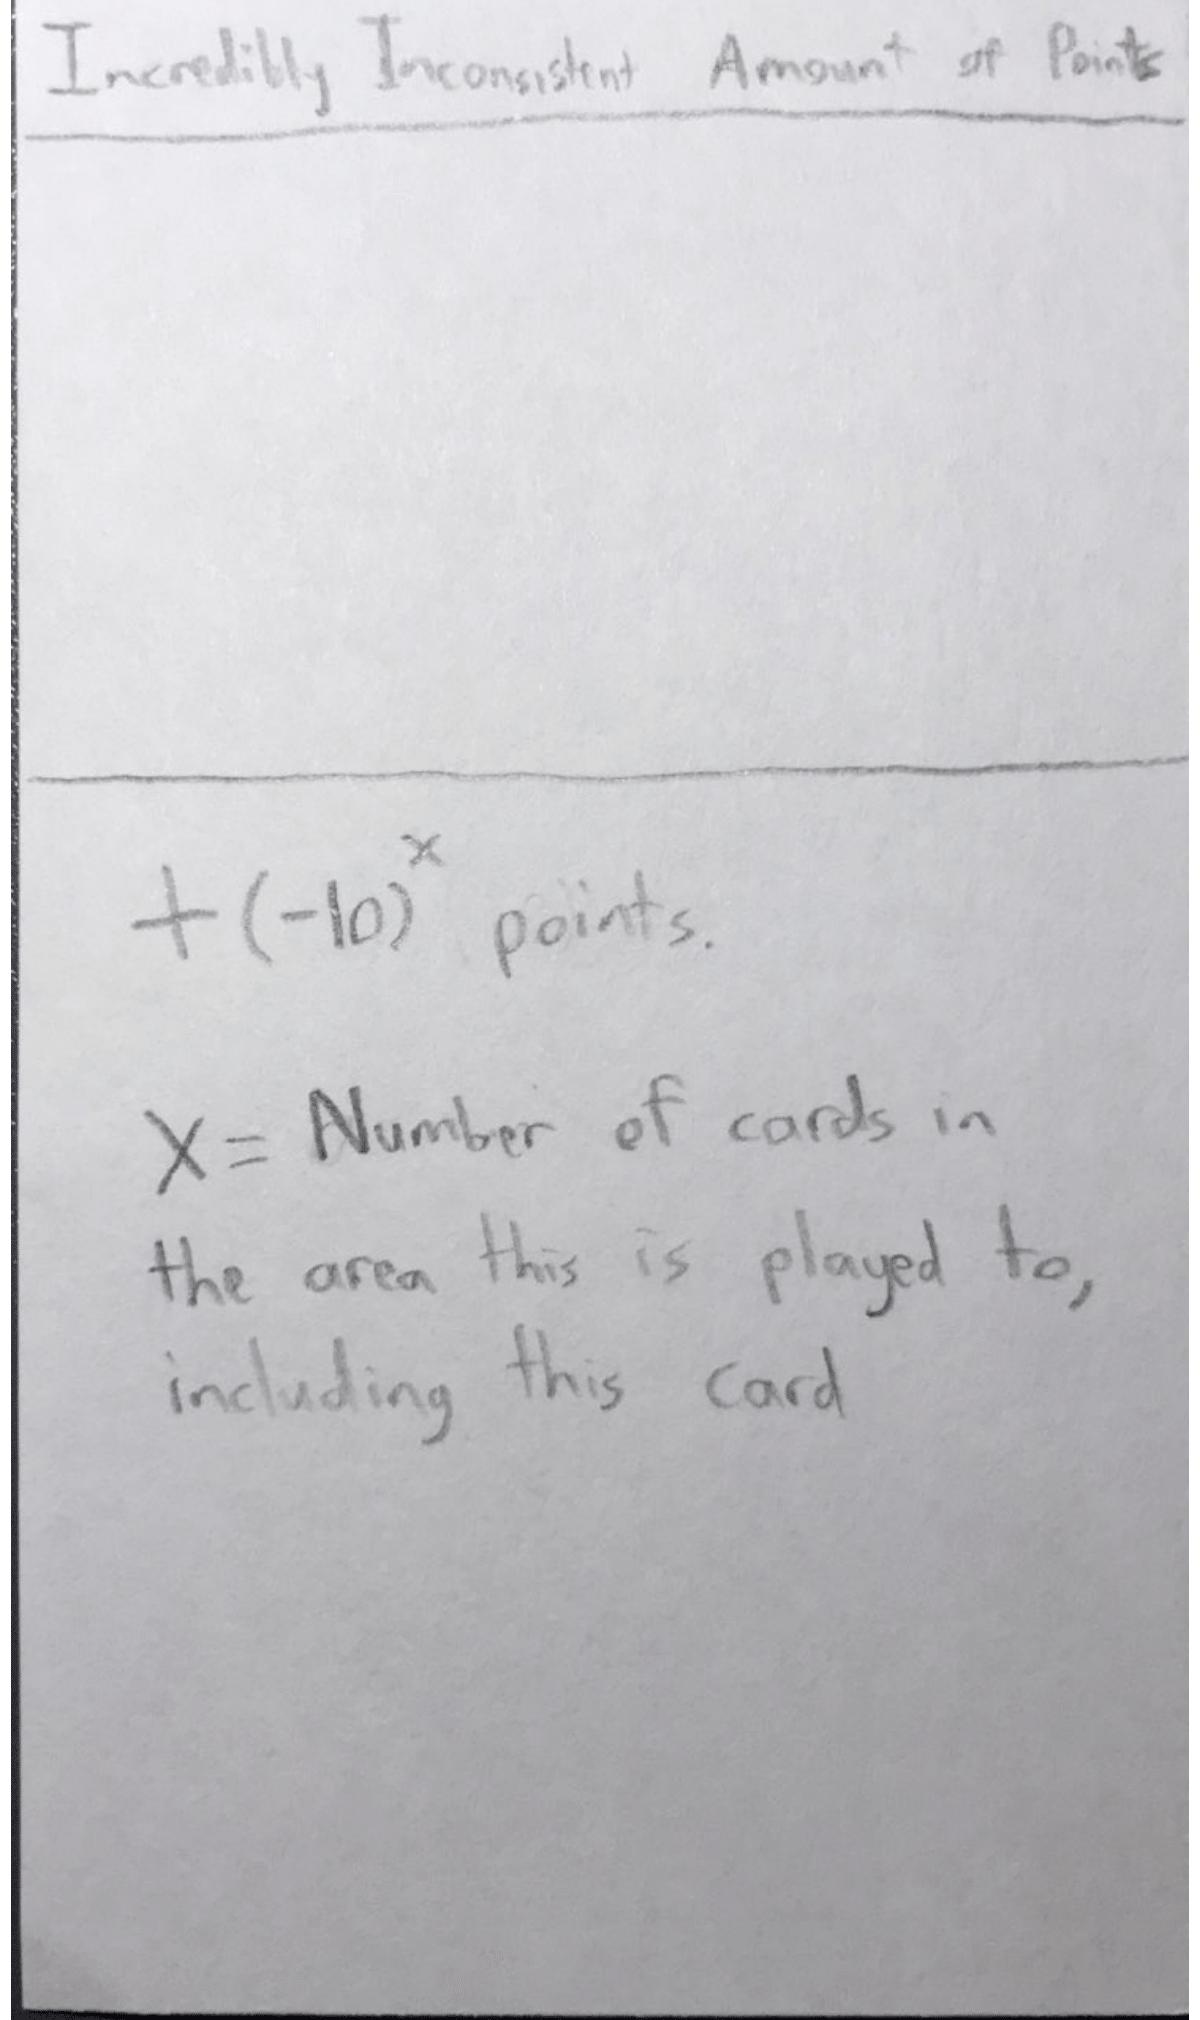 Incredibly Inconsistent Amount of Points
+(-10)^x points.
X= Number of cards in
the area this is played to,
including this card